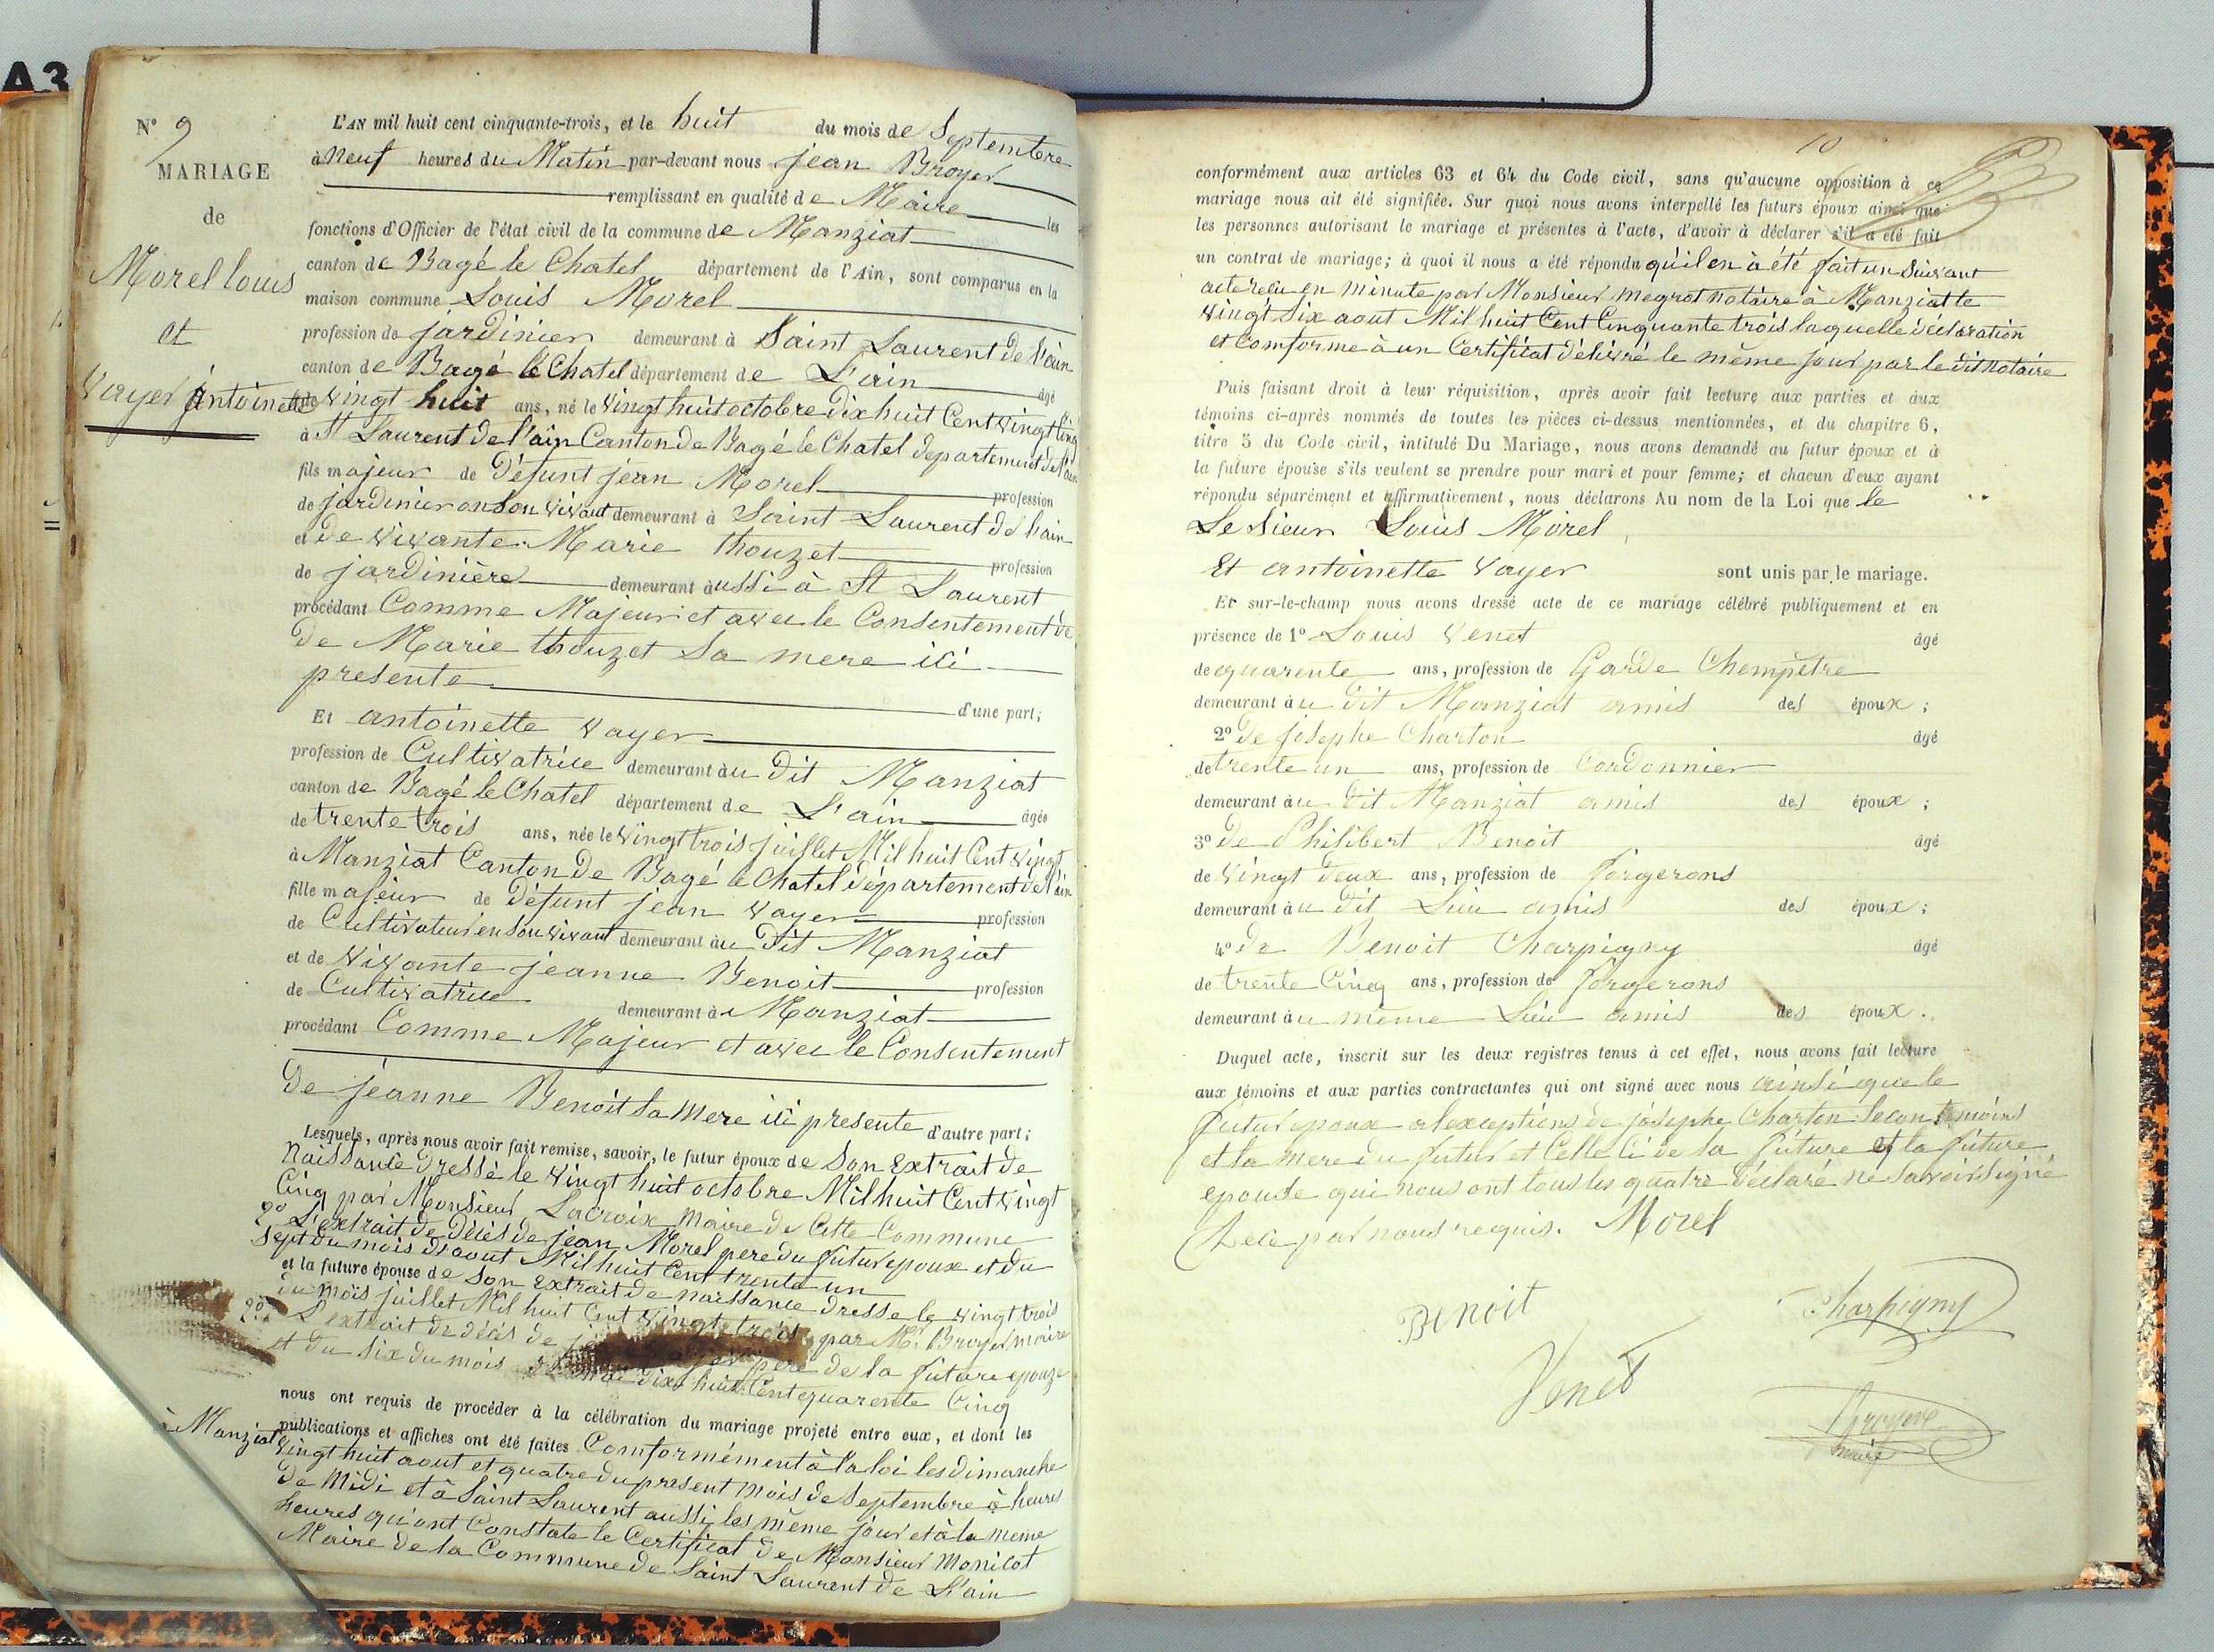 A3
N° 9
MARIAGE
de
Morel louis
et
Vayer Antoinette
L'AN mil huit cent cinquante-trois, et le huit du mois de Septembre
à neuf heures du Matin par-devant nous jean Broyer
remplissant en qualité de Maire les
fonctions d'Officier de l'état civil de la commune de Manziat
canton de Bagé le Chatel département de l'Ain, sont comparus en la
maison commune Louis Morel
profession de jardinier demeurant à Saint Laurent de l'ain
canton de Bagé le Chatel département de L'ain âgé
de vingt huit ans, né le vingt huit octobre dix huit Cent vingt Cinq
à St Laurent de l'ain Canton de Bagé le Chatel departement de l'ain
fils majeur de Défunt jean Morel profession
de jardinier en Son vivant demeurant à Saint Laurent de l'ain
et de vivante Marie thouzet profession
de jardinière demeurant aussi à St Laurent
procédant Comme Majeur et avec le Consentement de
De Marie thouzet Sa mere ici
presente d'une part;
Et antoinette vayer
profession de Cultivatrice demeurant àu dit Manziat
canton de Bagé le Chatel département de L'ain âgée
de trente trois ans, née le vingt trois juillet Mil huit Cent vingt
à Manziat Canton de Bagé le Chatel département de l'ain
fille majeur de Défunt jean vayer profession
de Cultivateur en Son vivant demeurant àu dit Manziat
et de vivante jeanne Benoit profession
de Cultivatrice demeurant à Manziat
procédant Comme Majeur et avec le Consentement
De jeanne Benoit Sa Mere ici presente d'autre part;
Lesquels, après nous avoir fait remise, savoir, le futur époux de Son Extrait de
Naissance dressé le vingt huit octobre Mil huit Cent vingt
Cinq par Monsieur Lacroix Maire de Cette Commune
2° L'extrait de Décès de jean Morel pere du futur epoux et du
Sept du mois d'aout Mil huit Cent trente un
et la future épouse de Son Extrait de naissance dressé le vingt trois
du mois juillet Mil huit Cent vingt par Mr Broyer maire
2° L'extrait de décès de pere de la future epouze
et du Six du mois dix huit Cent quarente Cinq
nous ont requis de procéder à la célébration du mariage projeté entre eux, et dont les
publications et affiches ont été faites Comformément à la loi les dimanche
à Manziat vingt huit aout et quatre du present mois de Septembre à heures
de Midi et à Saint Laurent aussi les même jour et à la meme
heures qui ont Constate le Certificat de Monsieur Monicot
Maire de la Commune de Saint Laurent de L'ain
10
conformément aux articles 63 et 64 du Code civil, sans qu'aucune opposition à ce
mariage nous ait été signifiée. Sur quoi nous avons interpellé les futurs époux ainsi que
les personnes autorisant le mariage et présentes à l'acte, d'avoir à déclarer s'il a été fait
un contrat de mariage; à quoi il nous a été répondu qu'il en à été fait un Suivant
acte recu en minute par Monsieur Megrot notaire à Manziat le
vingt Six aout Mil huit Cent Cinquante trois laquelle déclaration
et Comforme à un Certificat délivré le même jour par le dit Notaire
Puis faisant droit à leur réquisition, après avoir fait lecture aux parties et aux
témoins ci-après nommés de toutes les pièces ci-dessus mentionnées, et du chapitre 6,
titre 5 du Code civil, intitulé Du Mariage, nous avons demandé au futur époux et à
la future épouse s'ils veulent se prendre pour mari et pour femme; et chacun d'eux ayant
répondu séparément et affirmativement, nous déclarons Au nom de la Loi que le
Le Sieur Louis Morel
Et antoinette vayer sont unis par le mariage.
Et sur-le-champ nous avons dressé acte de ce mariage célébré publiquement et en
présence de 1° Louis Venet âgé
de quarente ans, profession de Garde Chempêtre
demeurant àu dit Manziat amis des époux;
2° de josephe Charton âgé
de trente un ans, profession de Cordonnier
demeurant àu dit Manziat amis des époux;
3° de Philibert Benoit âgé
de vingt deux ans, profession de forgerons
demeurant àu dit Lieu amis des époux;
4° de Benoit Charpigny âgé
de trente Cinq ans, profession de forgerons
demeurant àu même Lieu amis des époux.
Duquel acte, inscrit sur les deux registres tenus à cet effet, nous avons fait lecture
aux témoins et aux parties contractantes qui ont signé avec nous ainsi que le
futur epoux a l'exceptions de josephe Charton Secon temoins
et la mere du futur et Celle Ci de la future et la future
epouse qui nous ont tous les quatre déclaré ne Savoir Signé
De ce par nous requis. Morel
Benoit
Charpigny
Venet
Broyer
maire